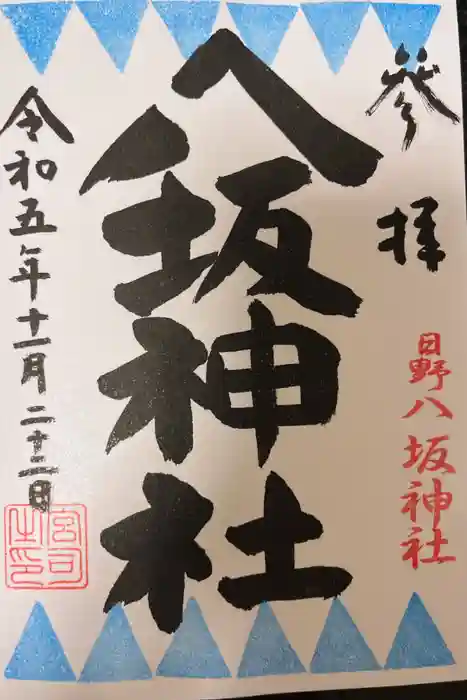 参拝
日野八坂神社
八坂神社
令和五年十一月二十二日
宮司之印